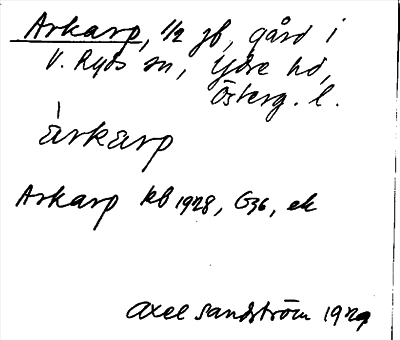 Arkarp, 1/2 jb, gård i
V. Ryds sn, Ydre hd,
Österg. l.
àrkarp
Arkarp kb 1928, G36, ek
Axel Sandström 1929